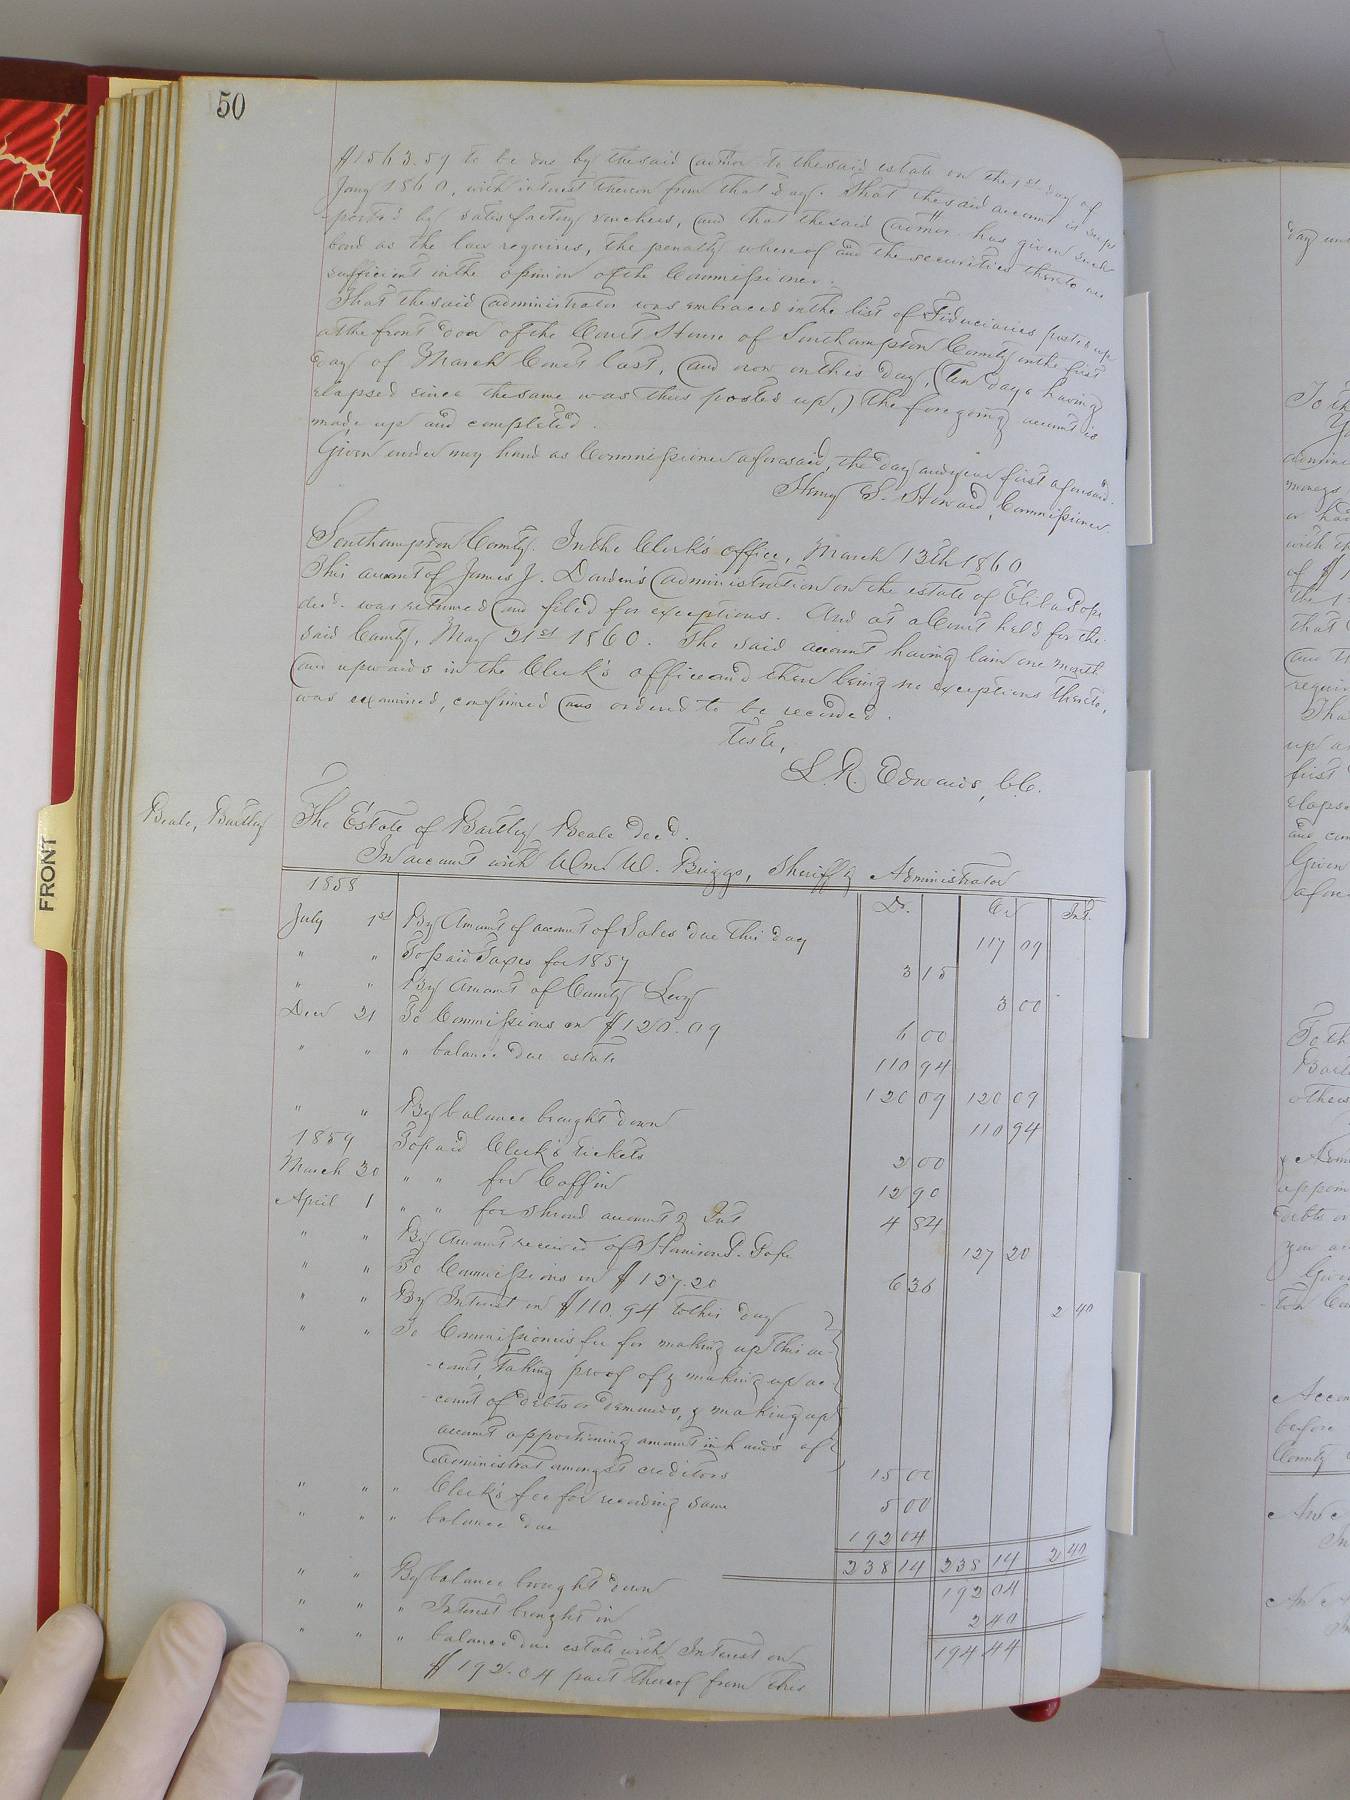 50
$1563.59 to be due by the said admor. to the said estate on the 1st day of
Jany 1860, with interest thereon from that day. That the said account is sup
ported by satisfactory vouchers, and that the said admor. has given such
bond as the law requires, the penalty whereof and the securities thereto are
sufficient in the opinion of the Commissioner.
That the said administrator was embraced in the list of Fiduciaries posted up
at the front door of the Court House of Southampton County on the first
day of March Court last, and now on this day, (ten days having
elapsed since the same was thus posted up,) the foregoing account is
made up and completed.
Given under my hand as Commissioner aforesaid, the day and year first aforesaid.
Henry S. Howard, Commissioner.
Southampton County. In the Clerk's office, March 13th 1860
This account of James J. Darden's administration on the estate of Pope
decd. was returned and filed for exceptions. And at a Court held for the
said County, May 21st 1860. The said account having lain one month
and upwards in the Clerk's office and there being no exceptions thereto,
was examined, confirmed and ordered to be recorded.
Teste,
L. R. Edwards, C.C.
Beale, Bartley
The Estate of Bartley Beale decd.
In account with Wm. W. Briggs, Sheriff & Administrator
1858 Dr. Cr Int.
July 1st By Amount of account of Sales due this day 117 09
" " To paid Taxes for 1857 3 15
" " By Amount of County Levy 3 00
Decr 21 To Commissions on $120.09 6 00
" " " balance due estate 110 94
120 09 120 09
" " By balance brought down 110 94
1859 To paid Clerk's tickets 2 00
March 30 " " for Coffin 12 90
April 1 " " for shroud account & Int 4 84
" " By Amount received of Harrison P. Pope 127 20
" " To Commissions on $127.20 6 36
" " By Interest on $110.94 to this day 2 40
" " To Commissioners fee for making up this ac-
-count, taking proof of & making up ac-
-count of debts or demands, & making up
account apportioning amount in hands of
Administrat amongst creditors 15 00
" " " Clerk's fee for recording same 5 00
" " " balance due 192 04
238 14 238 14 2 40
" " By balance brought down 192 04
" " " Interest brought in 2 40
" " " balance due estate with Interest on 194 44
$192.04 part thereof from this